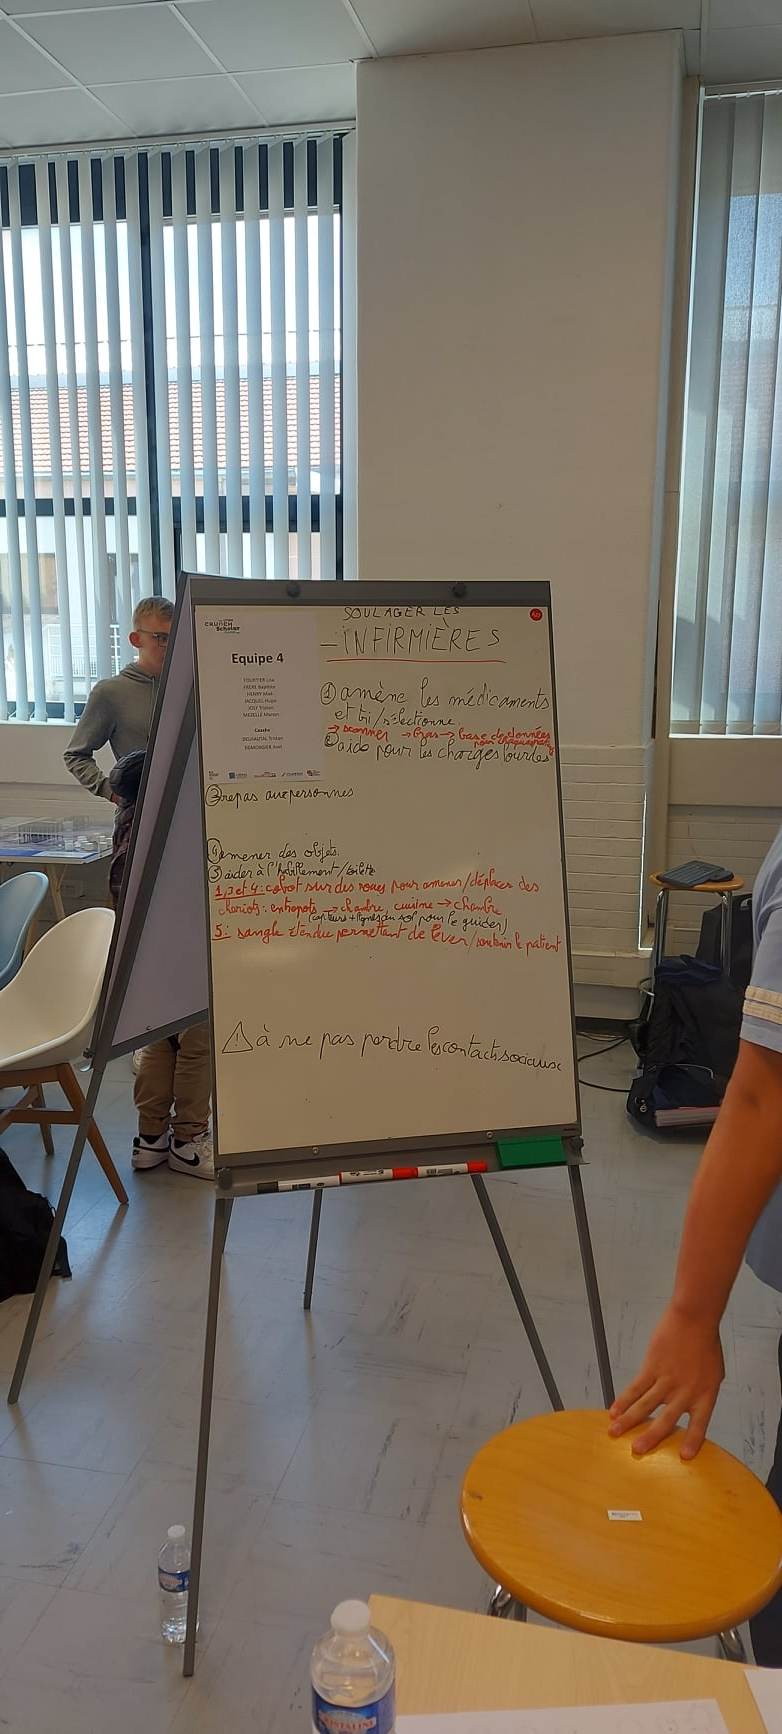 SOULAGER LES
- INFIRMIÈRES
CRUNCH
Scholar
Equipe 4
FRERE Baptiste
HENRY Maé
JACQUEL Hugo
JOLY Tristan
MEZELLE Manon
Coachs
① amène les médicaments
et tri/sélectionne.
→ scanner → bras → base de données
② aide pour les charges lourdes
③ repas aux personnes
④ amener des objets.
⑤ aider à l'habillement/toilette
1,3 et 4: cobot sur des roues pour amener/déplacer des
chariots: entrepots → chambre, cuisine → chambre
(capteurs + lignes au sol pour le guider)
5: sangle étendue permettant de lever/soutenir le patient
⚠ à ne pas perdre les contacts sociaux
CRISTALINE